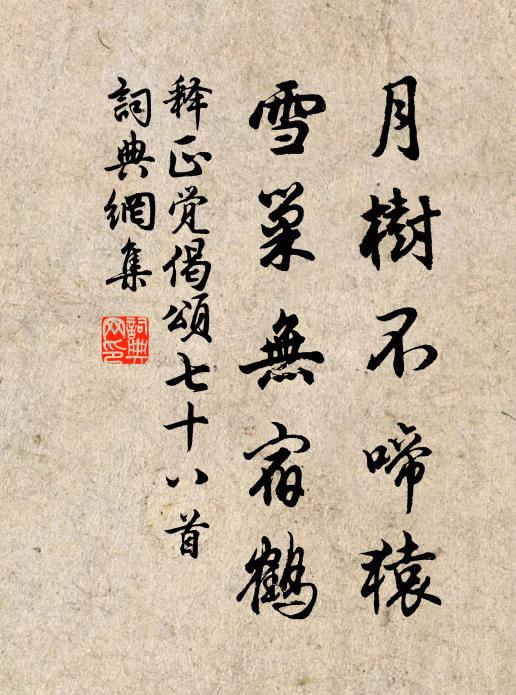 月樹不啼猿
雪巢無宿鶴
释正觉偈頌七十八首
詞典網集
詞典网印